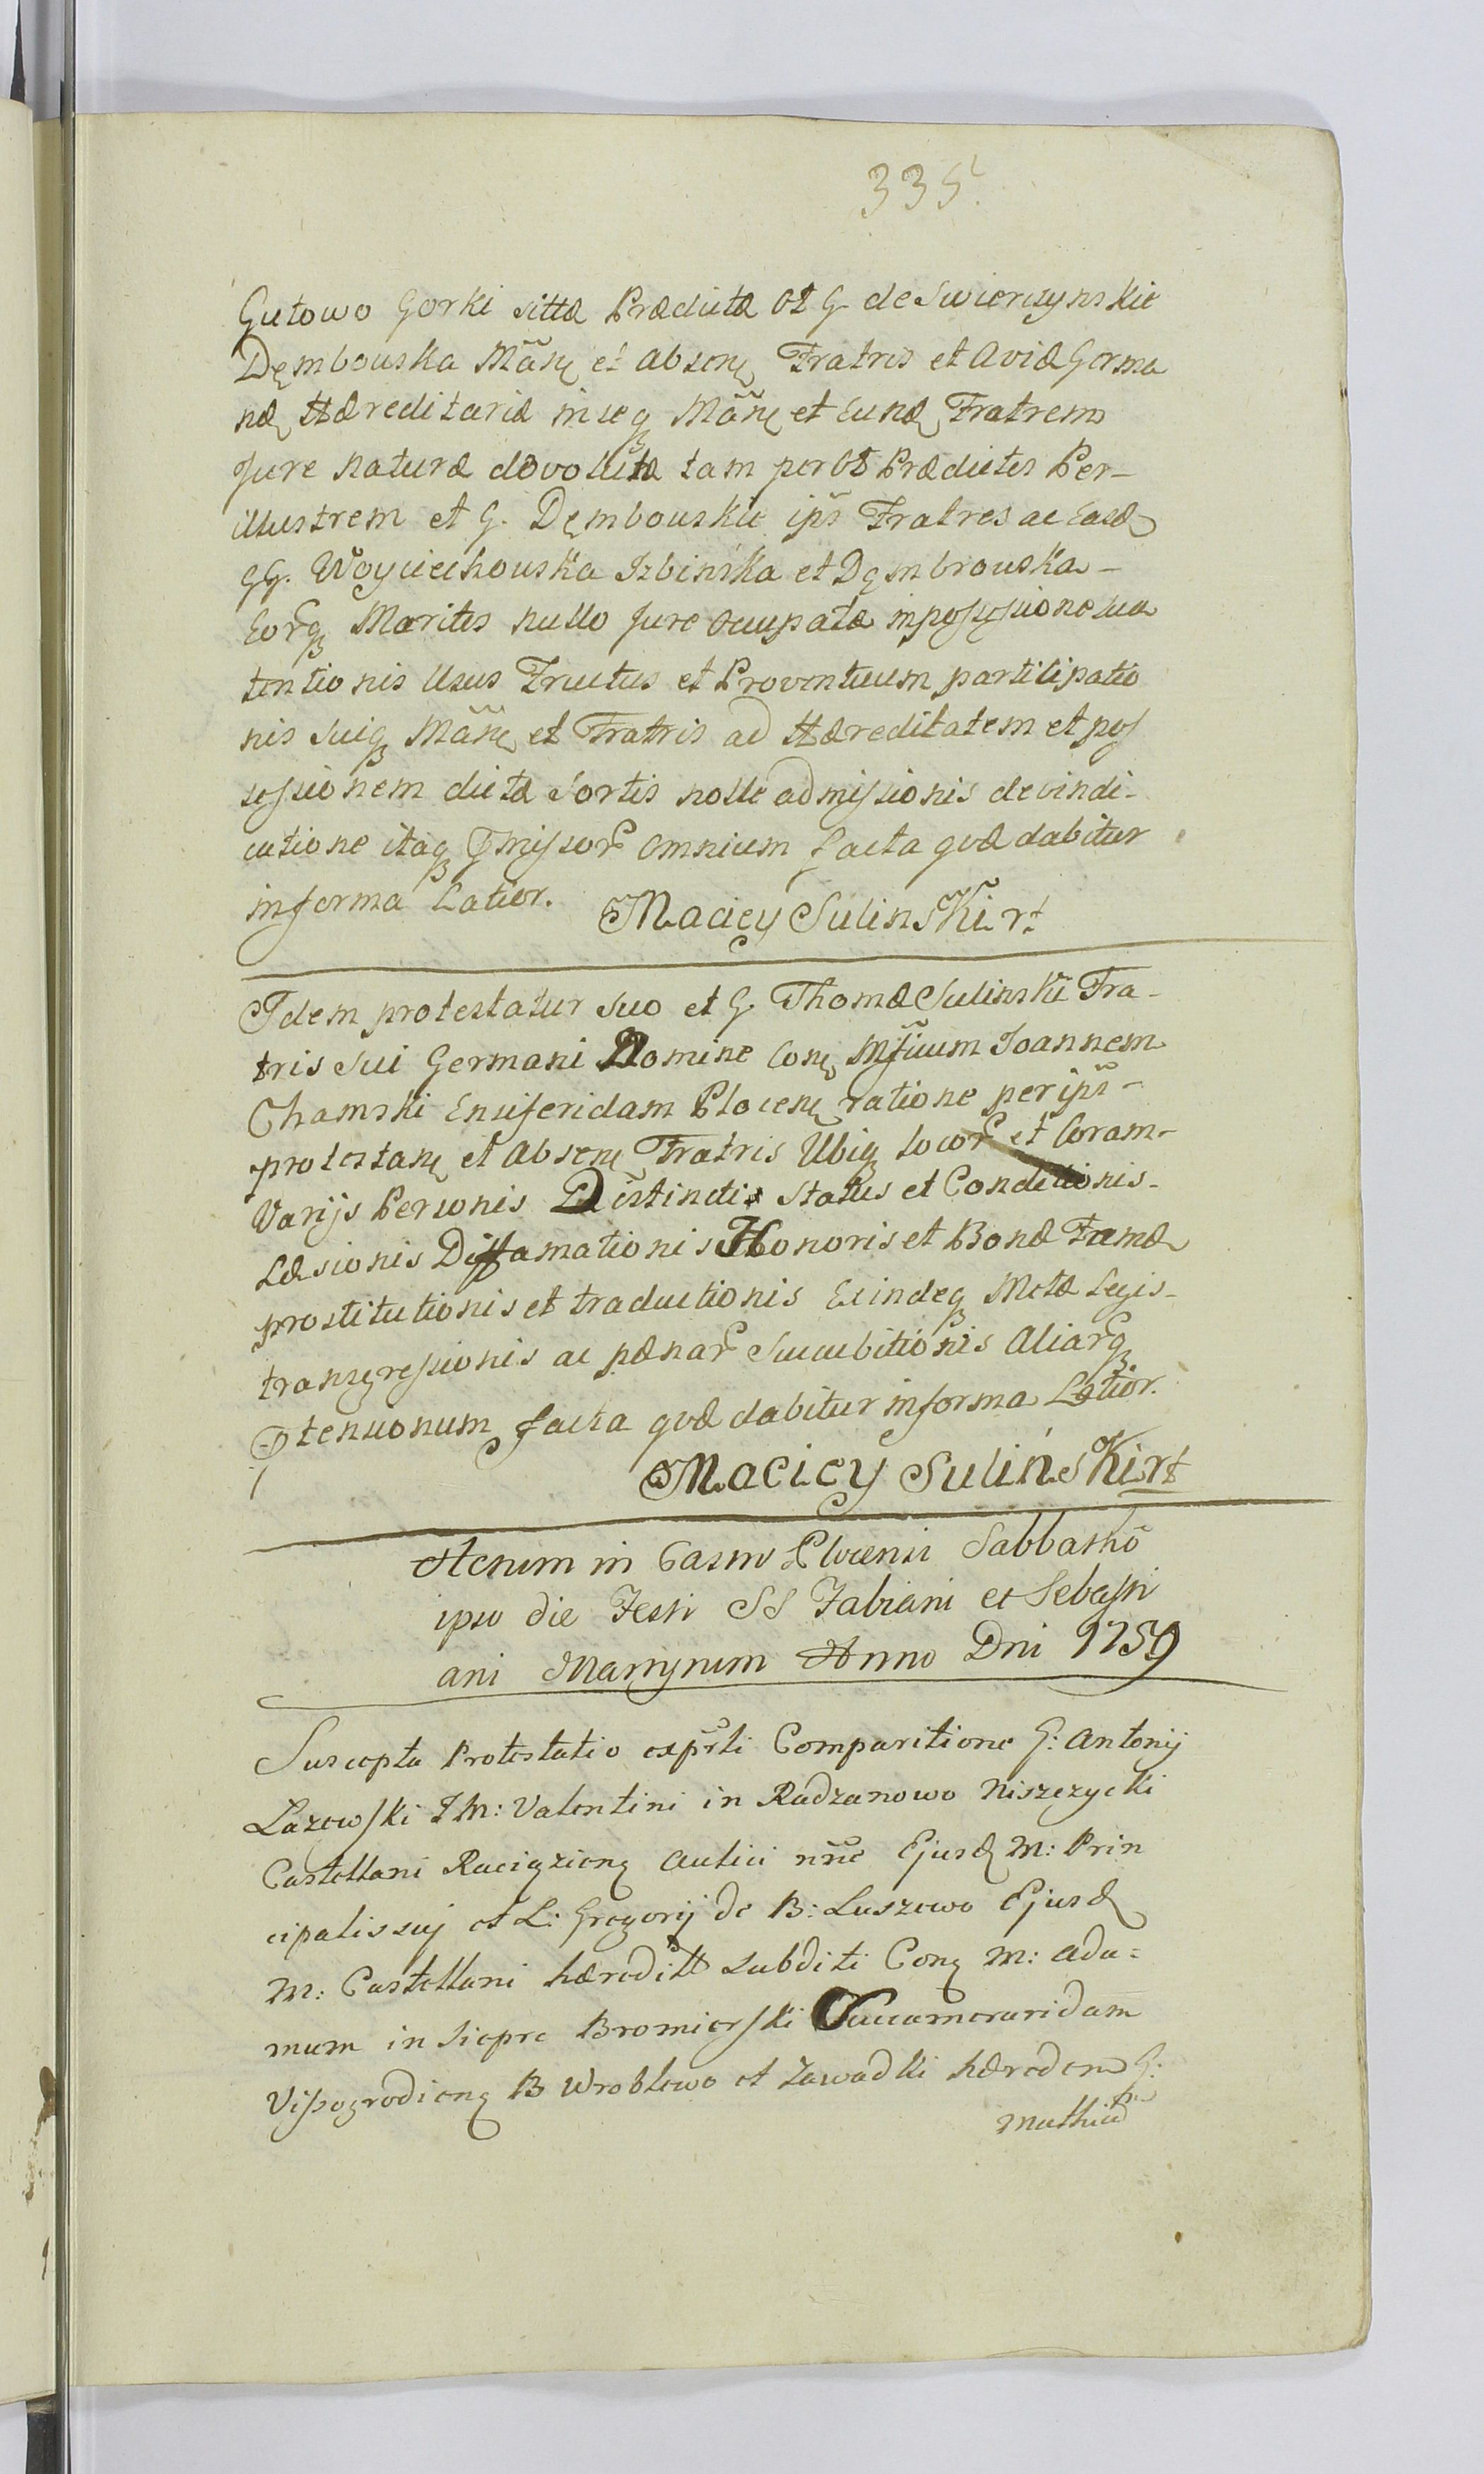 335.
Gutowo Gorki sittæ Prædictæ Ol G de Swierczynskie
Dęmbowska Mãñ et absen Fratris et aviæ Germa
næ Hæreditariæ inseq Mãñ et Eund Fratrem
Jure naturæ devolutæ tam per Ol Prædictos Per-
illustrem et G. Dembouskie ips Fratres ac Easd
GG. Woyciechouska Izbinska et Dęmbrouska-
Eorq Maritos nullo Jure ocupatæ in possessione sua
tentionis Usus Fructus et Proventuum participatio
nis Suiq Mãñ et Fratris ad Hæreditatem et pos
sessionem dictæ Sortis nolle admissionis de vindi-
catione itaq Pmissor omnium facta qvæ dabitur
in forma Latior. Maciey Sulinski rt
Idem protestatur Suo et G. Thomæ Sulinski Fra-
tris Sui Germani Nomine Con Mficum Joannem
Chamski Ensiferidam Plocen ratione per ips-
protestan et absen Fratris Ubiq locor et Coram-
Varijs Personis Distincti Status et Conditionis-
Læsionis Diffamationis Honoris et Bonæ Famæ
prostitutionis et traductionis Exindeq Metæ Legis-
transgressionis ac pænar Sucubitionis Aliarq
Ptensionum facta qvæ dabitur in forma Latior.
Maciey Sulinski rt
Actum in Castro Plocensi Sabbatho
ipso die Festi SS Fabiani et Sebasti
ani Martyrum Anno Dni 1759
Suscepta Protestatio exprti Comparitione G: Antonij
Lazewski I M: Valentini in Radzanowo Niszczycki
Castellani Raciązien Aulici nne Ejusd M: Prin
cipalis suj et L: Gregorij de B: Luszewo Ejusd
M: Castellani hæredit Subditi Con M: Ada=
mum in Siepre Bromierski Succameraridam
Vissogrodien B Wroblewo et Zawadki hæredem G:
Mathia